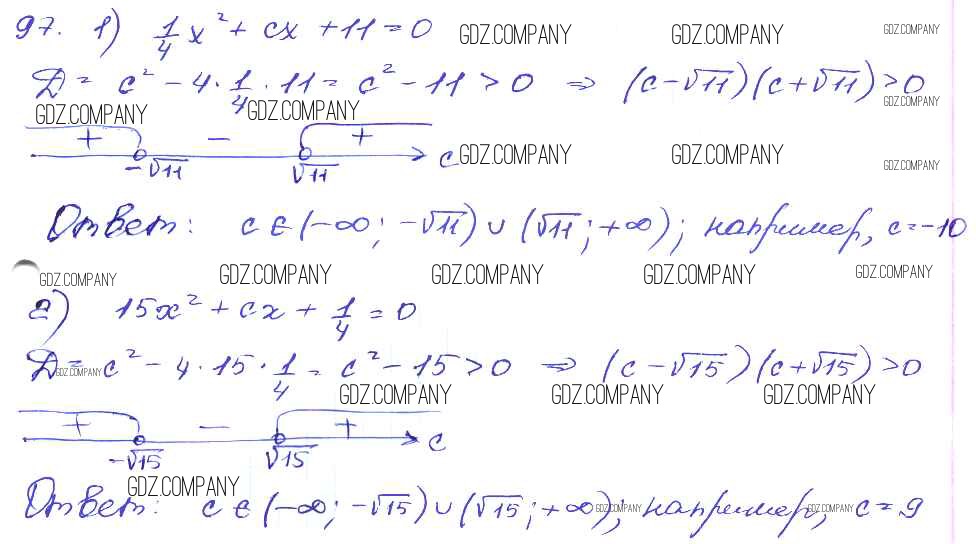 97. 1) 1/4 x² + cx + 11 = 0 GDZ.COMPANY GDZ.COMPANY GDZ.COMPANY
D = c² - 4·1/4·11 = c² - 11 > 0 ⇒ (c-√11)(c+√11)>0
GDZ.COMPANY GDZ.COMPANY GDZ.COMPANY
+ - +
-√11 √11 c GDZ.COMPANY GDZ.COMPANY GDZ.COMPANY
Ответ: c∈(-∞; -√11)∪(√11; +∞); например, c=-10
GDZ.COMPANY GDZ.COMPANY GDZ.COMPANY GDZ.COMPANY GDZ.COMPANY
2) 15x² + cx + 1/4 = 0
D = c² - 4·15·1/4 = c² - 15 > 0 ⇒ (c-√15)(c+√15)>0
GDZ.COMPANY GDZ.COMPANY GDZ.COMPANY GDZ.COMPANY
+ - +
-√15 √15 c
GDZ.COMPANY
Ответ: c∈(-∞; -√15)∪(√15; +∞); например, c=9
GDZ.COMPANY GDZ.COMPANY